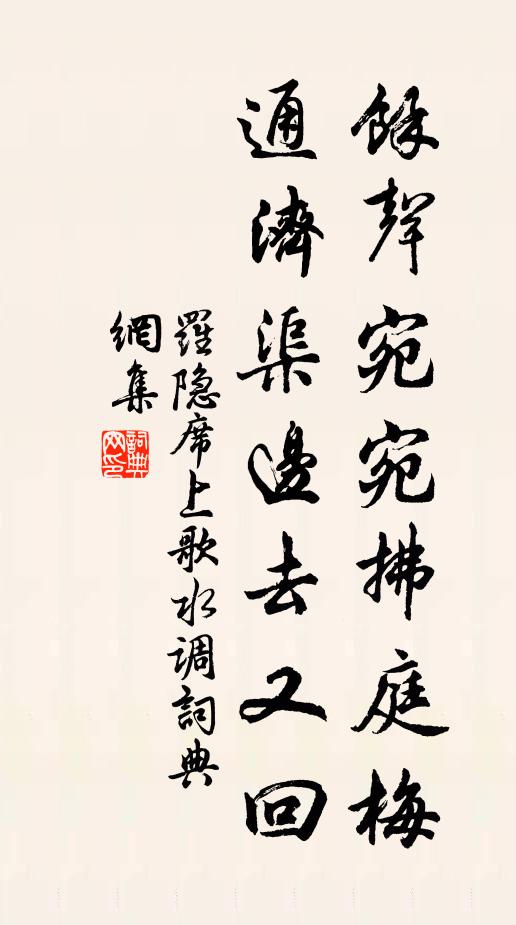 餘聲宛宛拂庭梅
通濟渠邊去又回
羅隐席上歌水调詞典
網集
詞典网印